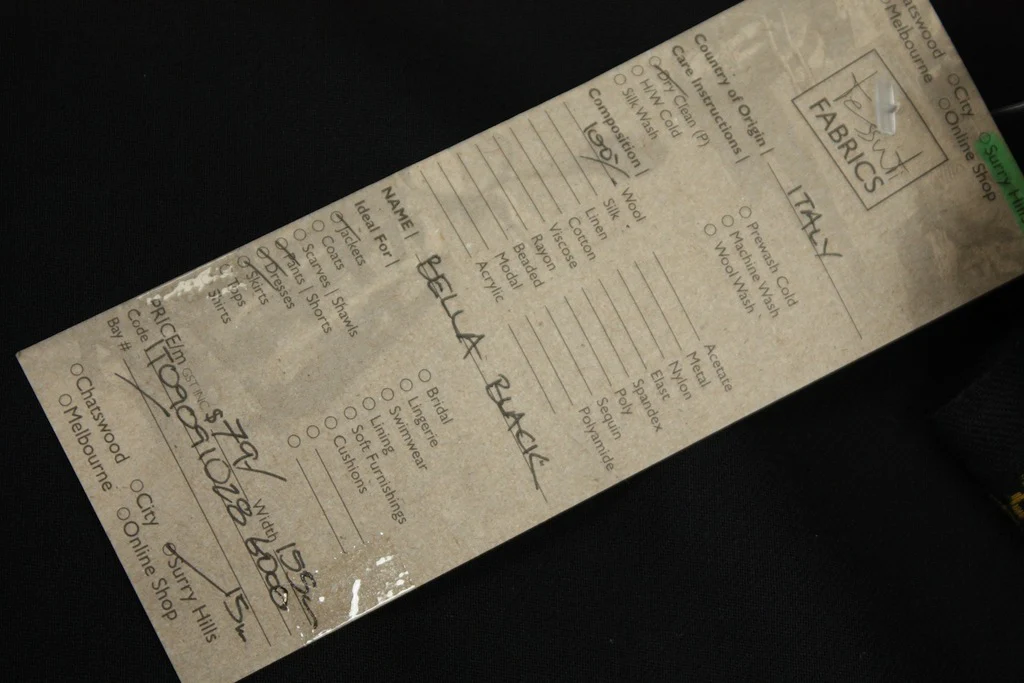 Chatswood
City
Surry Hills
Melbourne
Online Shop
tessuti
FABRICS
Country of Origin | ITALY
Care Instructions |
Dry Clean (P)
H/W Cold
Silk Wash
Prewash Cold
Machine Wash
Wool Wash
Composition |
100% Wool
Silk
Linen
Cotton
Viscose
Rayon
Beaded
Modal
Acrylic
Acetate
Metal
Nylon
Elast
Spandex
Poly
Sequin
Polyamide
NAME | BELLA BLACK
Ideal For |
Jackets
Coats
Scarves | Shawls
Pants | Shorts
Dresses
Skirts
Tops
Shirts
Bridal
Lingerie
Swimwear
Lining
Soft Furnishings
Cushions
PRICE/m GST INC $79 Width 150cm
Code |
Bay # 15m
Chatswood
City
Surry Hills
Melbourne
Online Shop